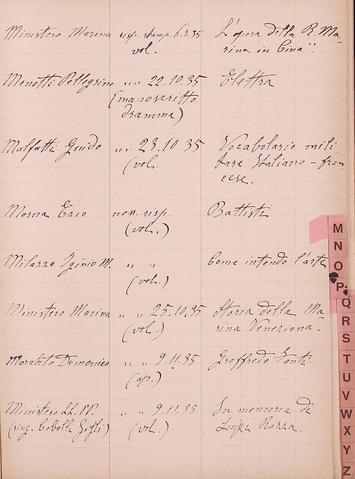 Ministero Marina risp. stamp. 6.3.35 L'opera della R. Ma
vol. rina in Cina".
Menotti Pellegrino " " 22.10.35 Elettra
(manoscritto
dramma)
Malfatti Guido " " 23.10.35 Vocabolario mili
(vol. tare Italiano - fran
cese.
Mosna Ezio non risp. Battisti
(vol.)
Milazzo Iginio M. " " Come intendo l'arte
(vol.)
Ministero Marina " " 25.10.35 Storia della Ma
(vol.) rina Veneziana.
Morabito Domenico " " 9.11.35 Goffredo
(op.)
Ministero LL. PP. " " 9.11.35 In memoria di
(ing. Cobolli Gigli) (vol.) Luigi Razza.
M
N
O
P
Q
R
S
T
U
V
W
X
Y
Z